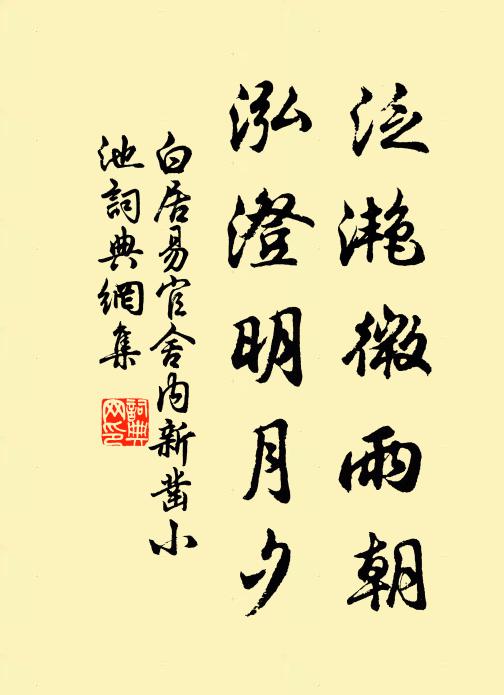 泛滟微雨朝
泓澄明月夕
白居易官舍内新凿小
池詞典網集
詞典
网印